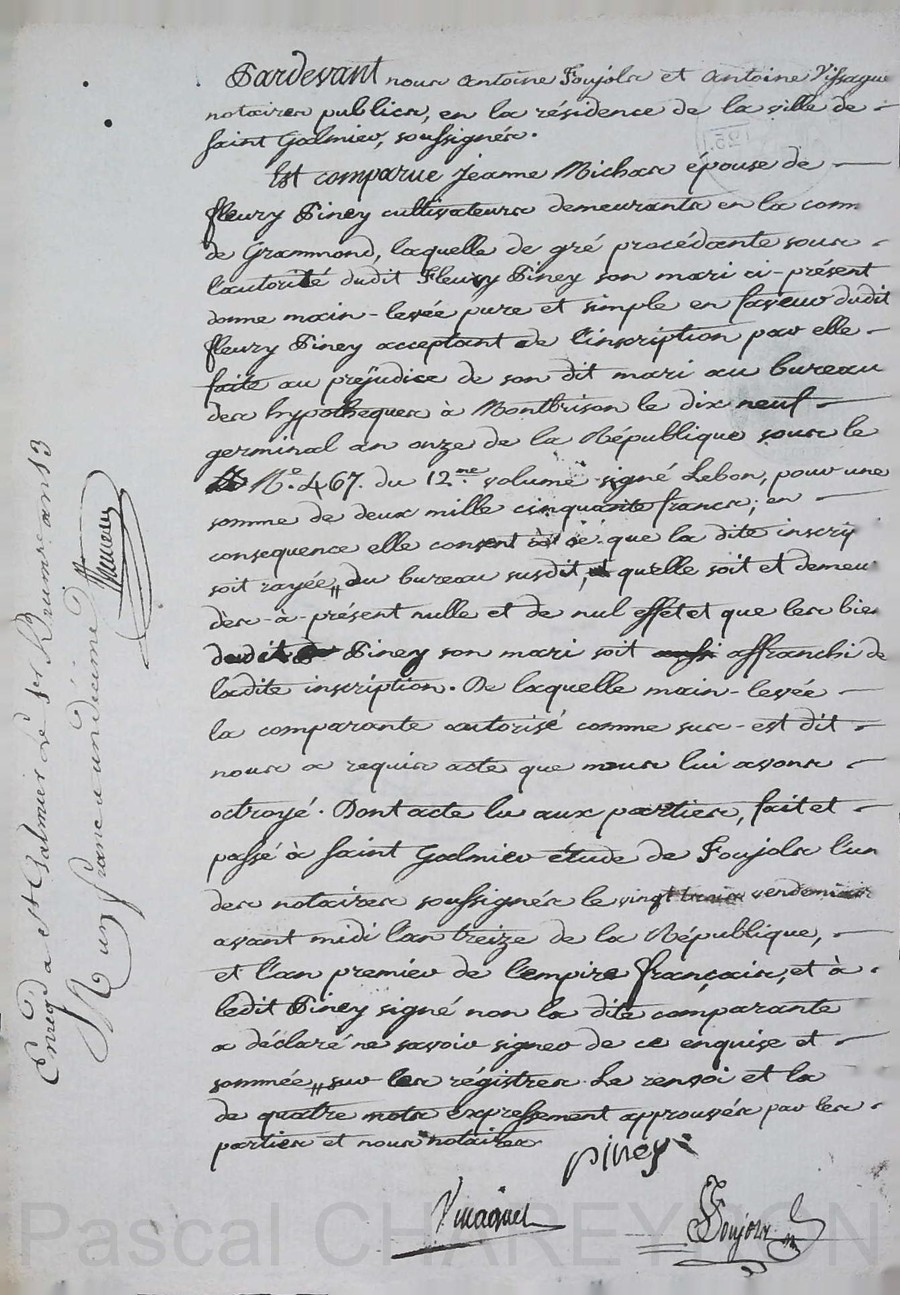 Pardevant nous Antoine Foujols et Antoine Vissague
notaires publics, en la résidence de la ville de
Saint Galmier, soussignés.
Est comparue Jeanne Michas epouse de
fleury Piney cultivateurs demeurants en la com
de Grammond, laquelle de gré procédante sous
l'autorité dudit Fleury Piney son mari ci-présent
donne main-levée pure et simple en faveur dudit
fleury Piney acceptant de l'inscription par elle
faite au préjudice de son dit mari au bureau
des hypotheques à Montbrison le dix neuf
germinal an onze de la République sous le
N.º 467. du 12.me volume signé Lebon, pour une
somme de deux mille cinquante francs; en
consequence elle consent que la dite inscrip
soit rayée, du bureau susdit, quelle soit et demeu
dès-à-présent nulle et de nul effet et que les bie
dudit Piney son mari soit aussi affranchi de
ladite inscription. De laquelle main-levée
la comparante autorisé comme sus-est dit
nous a requis acte que nous lui avons
octroyé. Dont acte lu aux parties, fait et
passé à Saint Galmier étude de Foujols l'un
des notaires soussignés le vingt trois vendemiaire
avant midi l'an treize de la République,
et l'an premier de l'empire français, et à
ledit Piney signé non la dite comparante
a déclaré ne savoir signer de ce enquise et
sommée, sur les régistres. Le renvoi et la
de quatre mots expressement approuvés par les
parties et nous notaires
piney
Foujols
Enregd a st Galmier le 1er Brumaire an 13
R un franc un décime
Pascal CHAREYRON